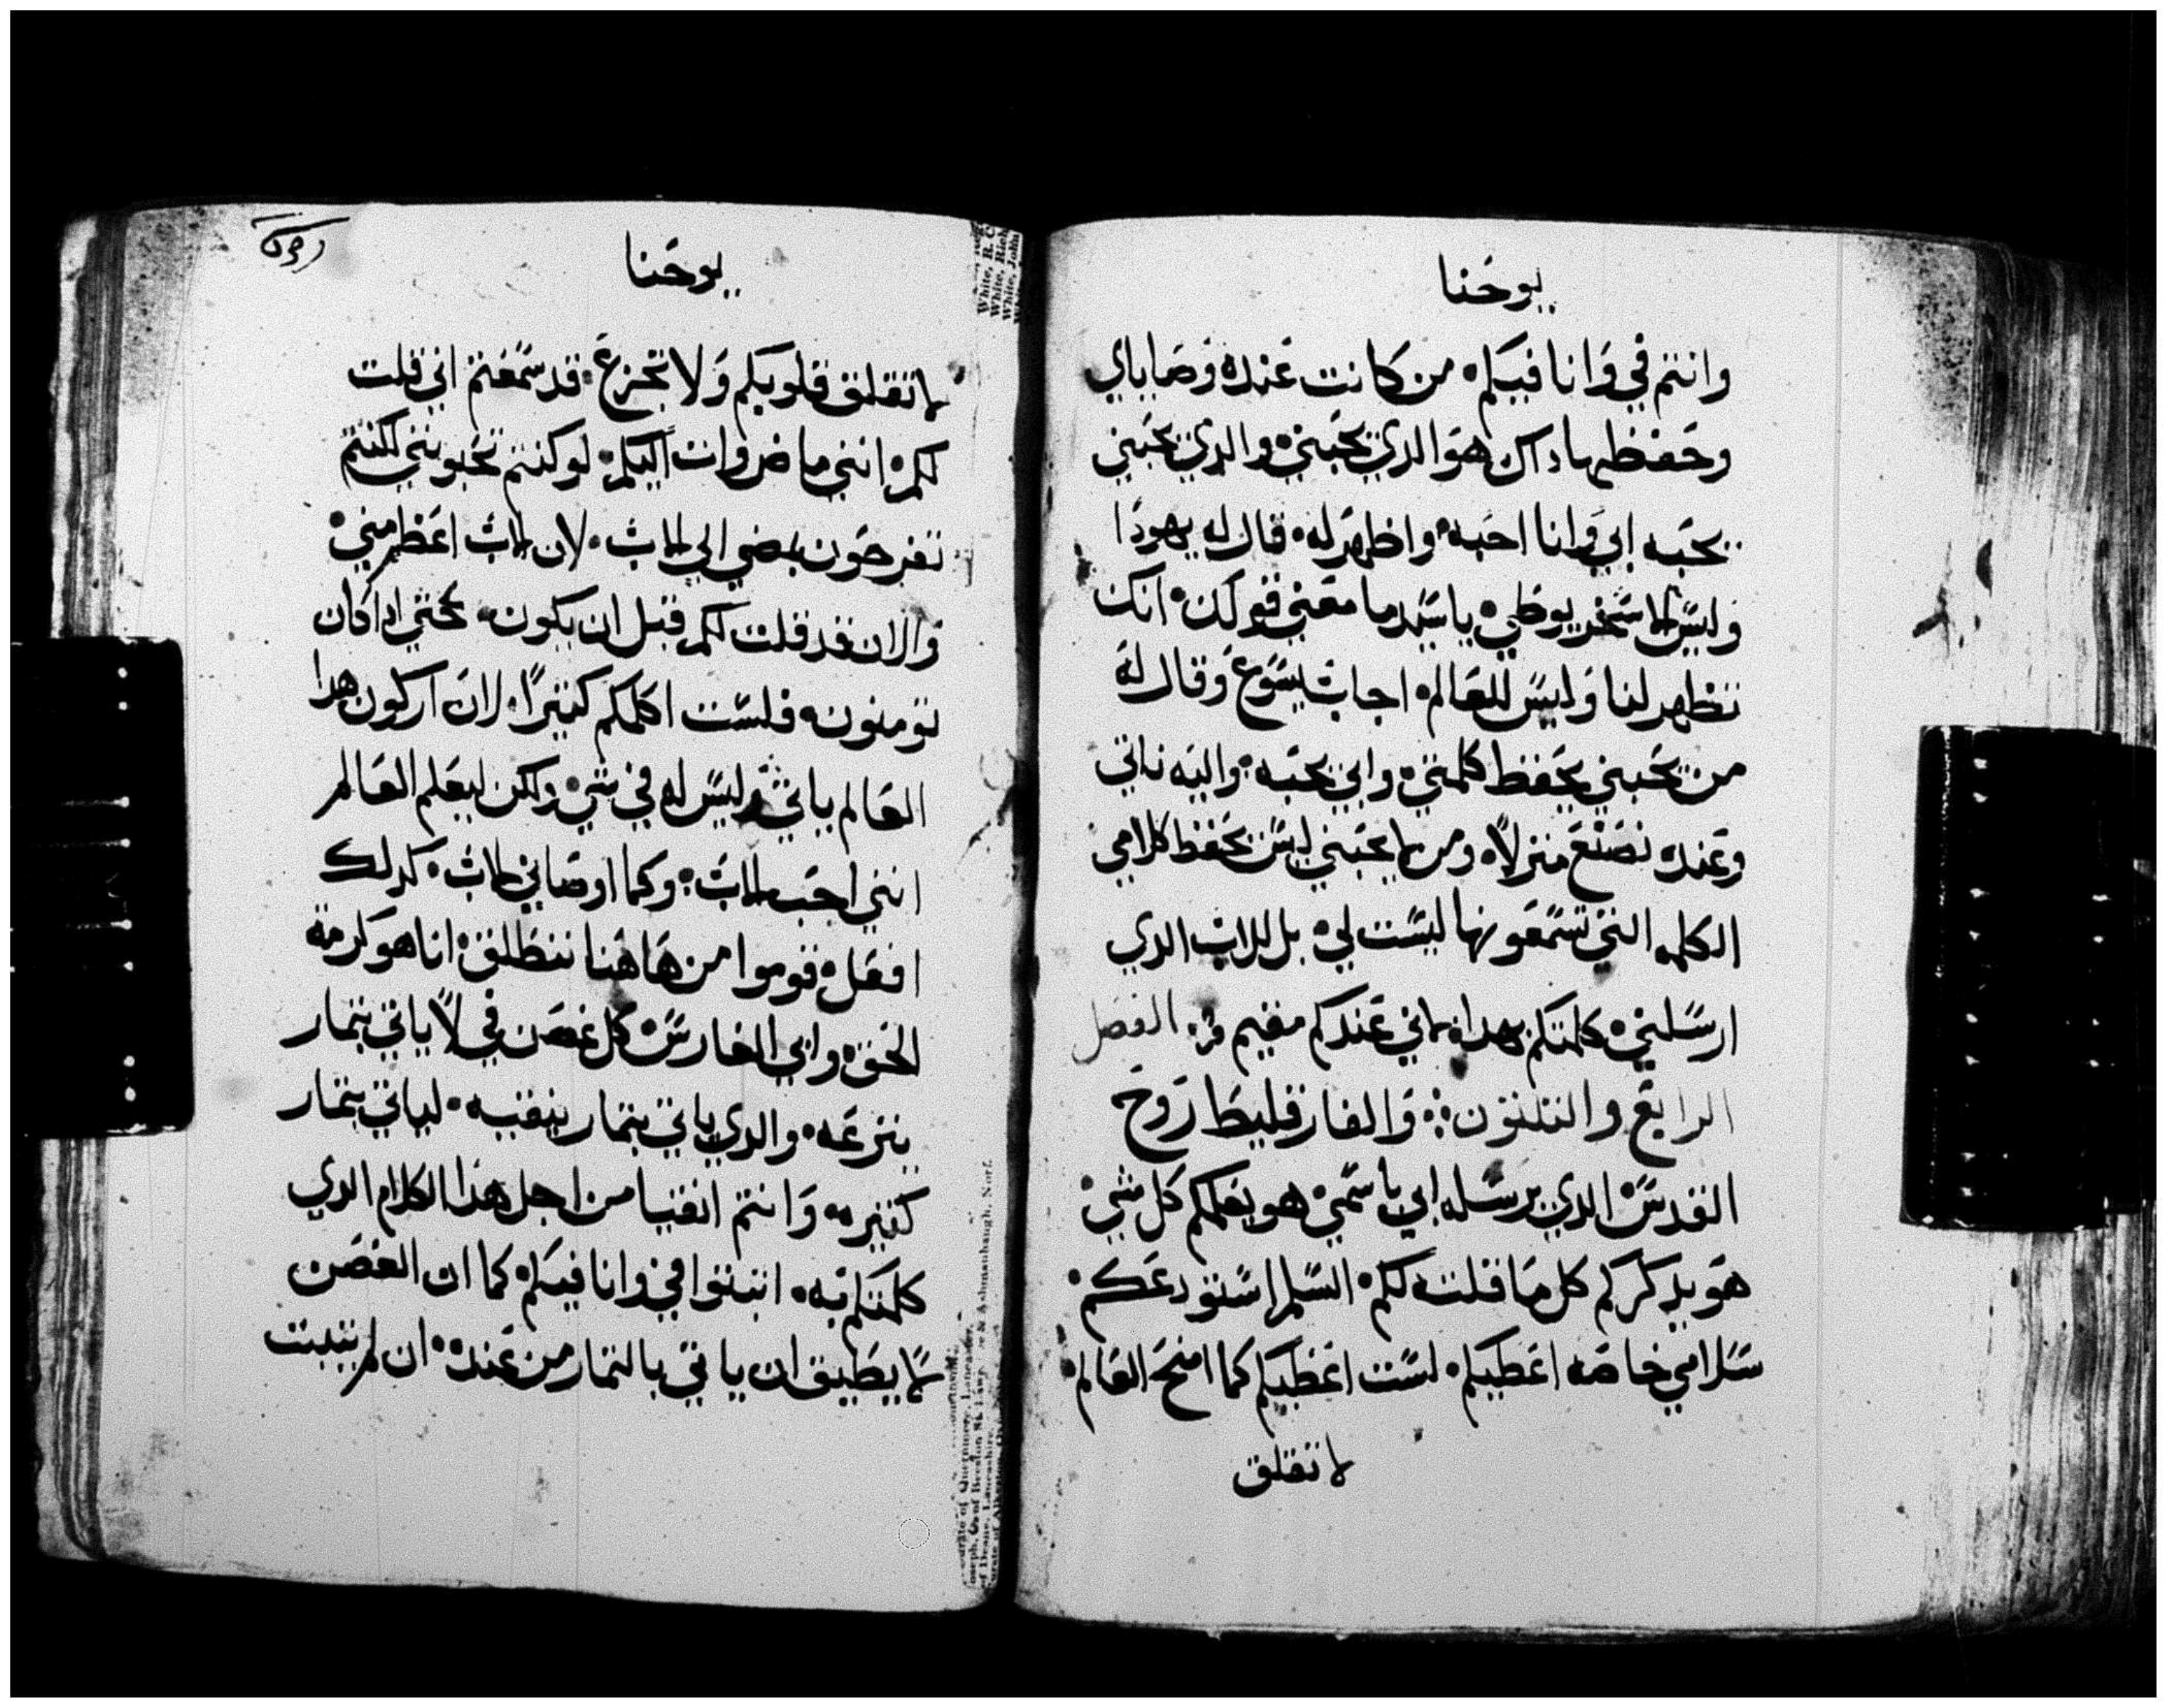 يوحنا
وانتم في وانا فيكم من كانت عنده وصاياي
وحفظها داك هو الدي يحبني والدي يحبني
يحبه ابي وانا احبه واظهر له قال له يهودا
وليس الاسخريوطي يا سيد ما معني قولك انك
تظهر لنا وليس للعالم اجاب يسوع وقال له
من يحبني يحفظ كلمتي وابي يحبه واليه ناتي
وعنده نصنع منزلا ومن لا يحبني ليس يحفظ كلامي
الكلمه التي تسمعونها ليست لي بل للاب الدي
ارسلني كلمتكم بهدا لاني عندكم مقيم الفصل
الرابع والتلتون والفارقليط روح
القدس الدي يرسله ابي باسمي هو يعلمكم كل شي
هو يدكركم كل ما قلت لكم السلم استودعكم
سلامي خاصه اعطيكم لست اعطيكم كما امنح العالم
لا تقلق
يوحنا
لا تقلق قلوبكم ولا تجزع قد سمعتم اني قلت
لكم انني ماض وات اليكم لو كنتم تحبونني لكنتم
تفرحون بمضي الي الاب لان الاب اعظم مني
والان قد قلت لكم قبل ان يكون حتي ادا كان
تومنون فلست اكلمكم كتيرا لان اركون هدا
العالم ياتي وليس له في شي ولكن ليعلم العالم
انني احب الاب وكما اوصاني الاب كدلك
افعل قوموا من هاهنا ننطلق انا هو كرمة
الحق وابي الغارس كل غصن في لا ياتي بتمار
ينزعه والدي ياتي بتمار ينقيه لياتي بتمار
كتيره وانتم انقيا من اجل هدا الكلام الدي
كلمتكم به اتبتوا في وانا فيكم كما ان الغصن
لا يطيق ان ياتي بالتمار من عنده ان لم يتبت